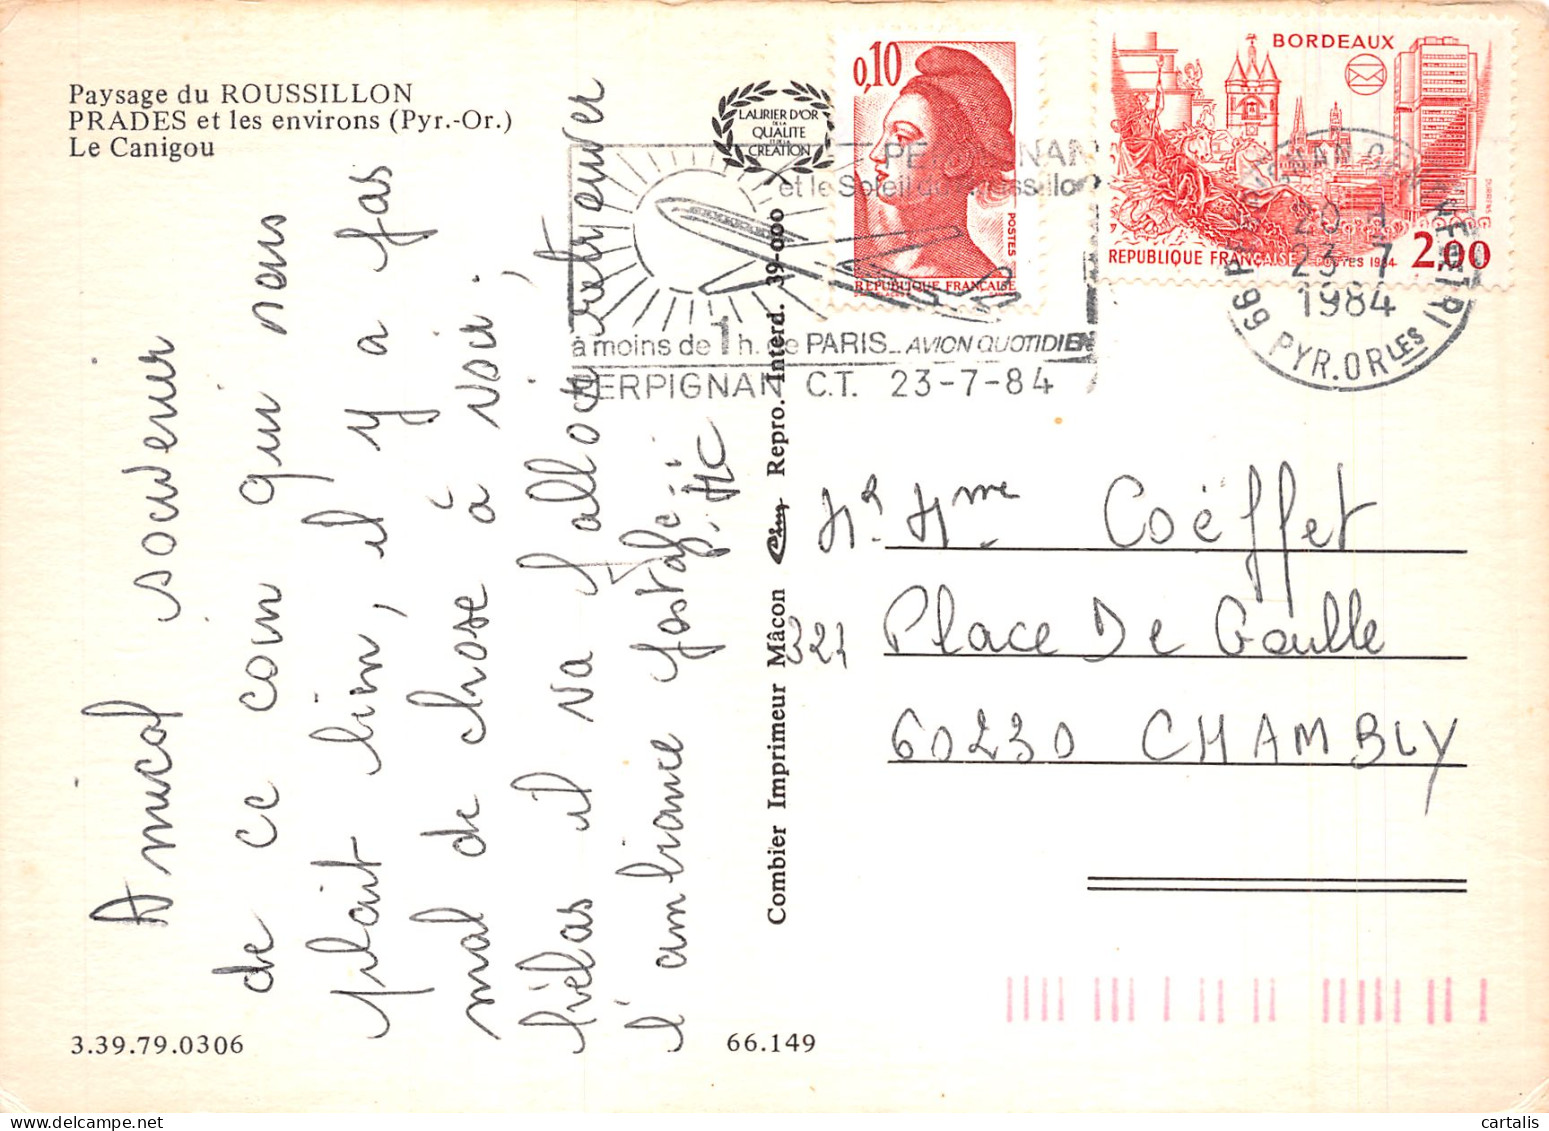 Paysage du ROUSSILLON
PRADES et les environs (Pyr.-Or.)
Le Canigou
LAURIER D'OR
DE LA
QUALITE
ET DE LA
CREATION
0,10
POSTES
REPUBLIQUE FRANÇAISE
BORDEAUX
REPUBLIQUE FRANÇAISE POSTES 1984 2,00
DURRENS
PERPIGNAN
et le Soleil du Roussillon
à moins de 1 h. de PARIS_ AVION QUOTIDIEN
PERPIGNAN C.T. 23-7-84
20 H
23-7
1984
66 PYR.ORLES
Amical souvenir
de ce coin qui nous
plait bien, il y a pas
mal de chose à voir.
hélas il va falloir retrouver
l'ambiance postale
J. MC
Combier Imprimeur Mâcon Cim Repro. Interd. 39-000
Mr Mme Coëffet
321 Place De Gaulle
60230 CHAMBLY
3.39.79.0306
66.149
cartalis